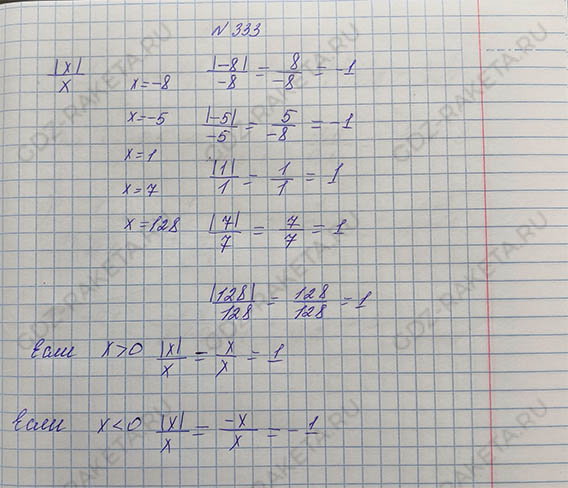 N 333
|x|/x x=-8 |-8|/-8 = 8/-8 = -1
x=-5 |-5|/-5 = 5/-8 = -1
x=1 |1|/1 = 1/1 = 1
x=7
x=128 |7|/7 = 7/7 = 1
|128|/128 = 128/128 = 1
Если x>0 |x|/x = x/x = 1
Если x<0 |x|/x = -x/x = -1
GDZ-RAKETA.RU